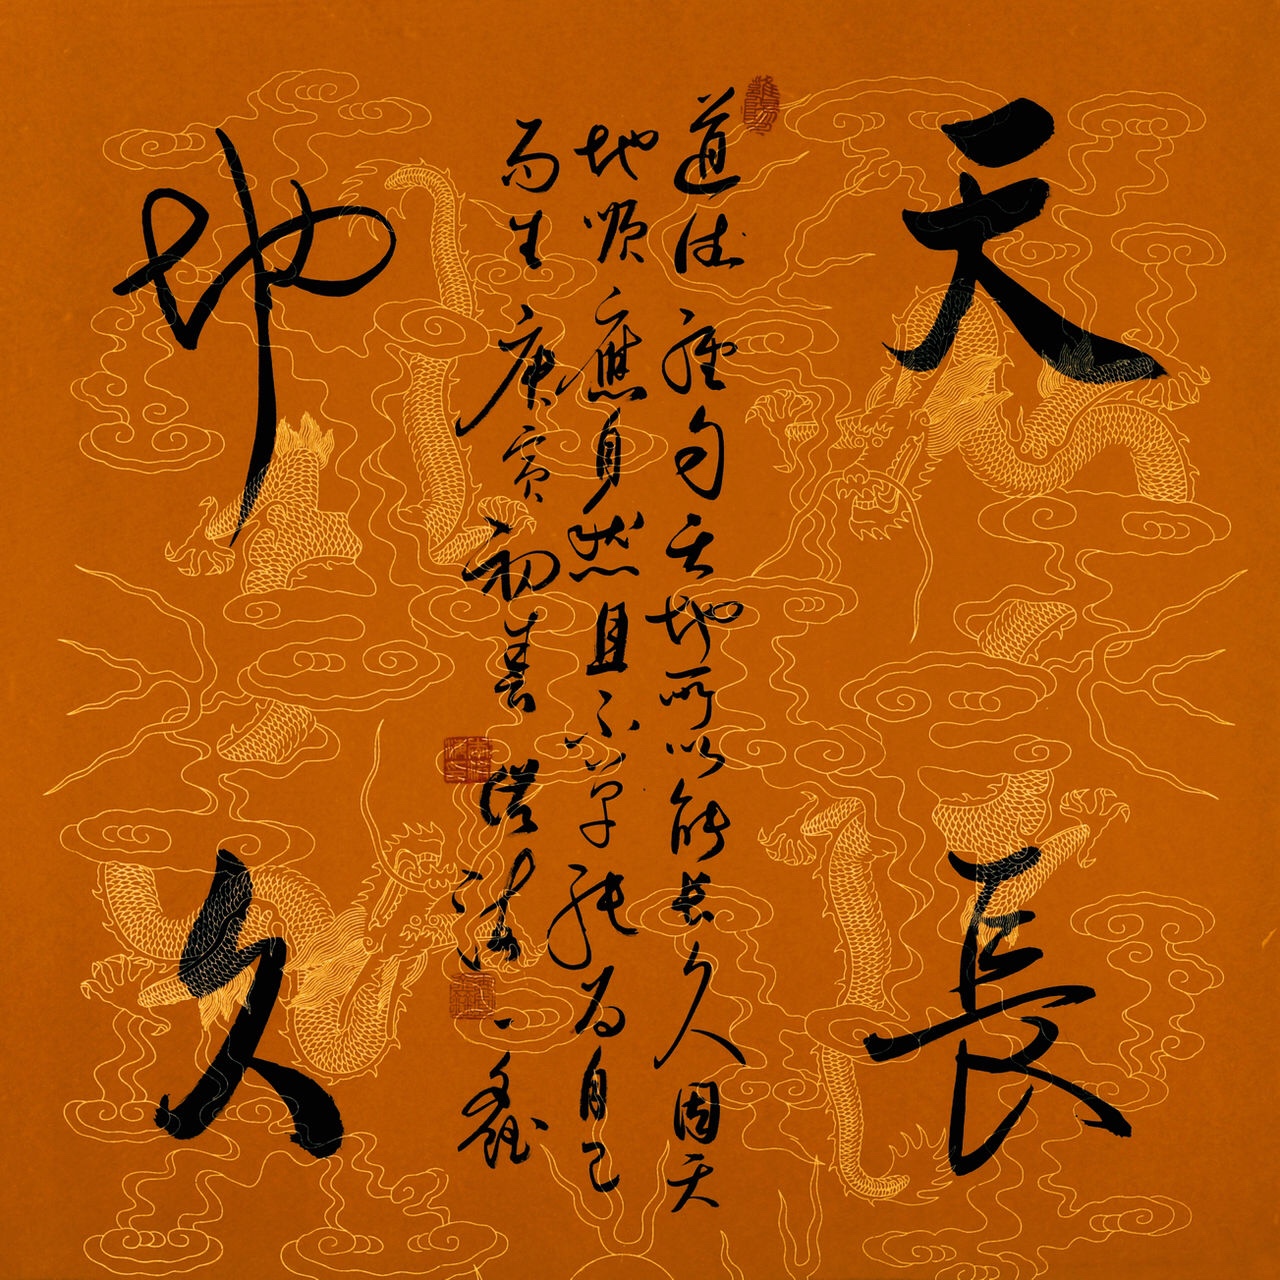 天長
地久
道德經句天地所以能長久因天
地順應自然且不单純为自己
而生 庚寅初春